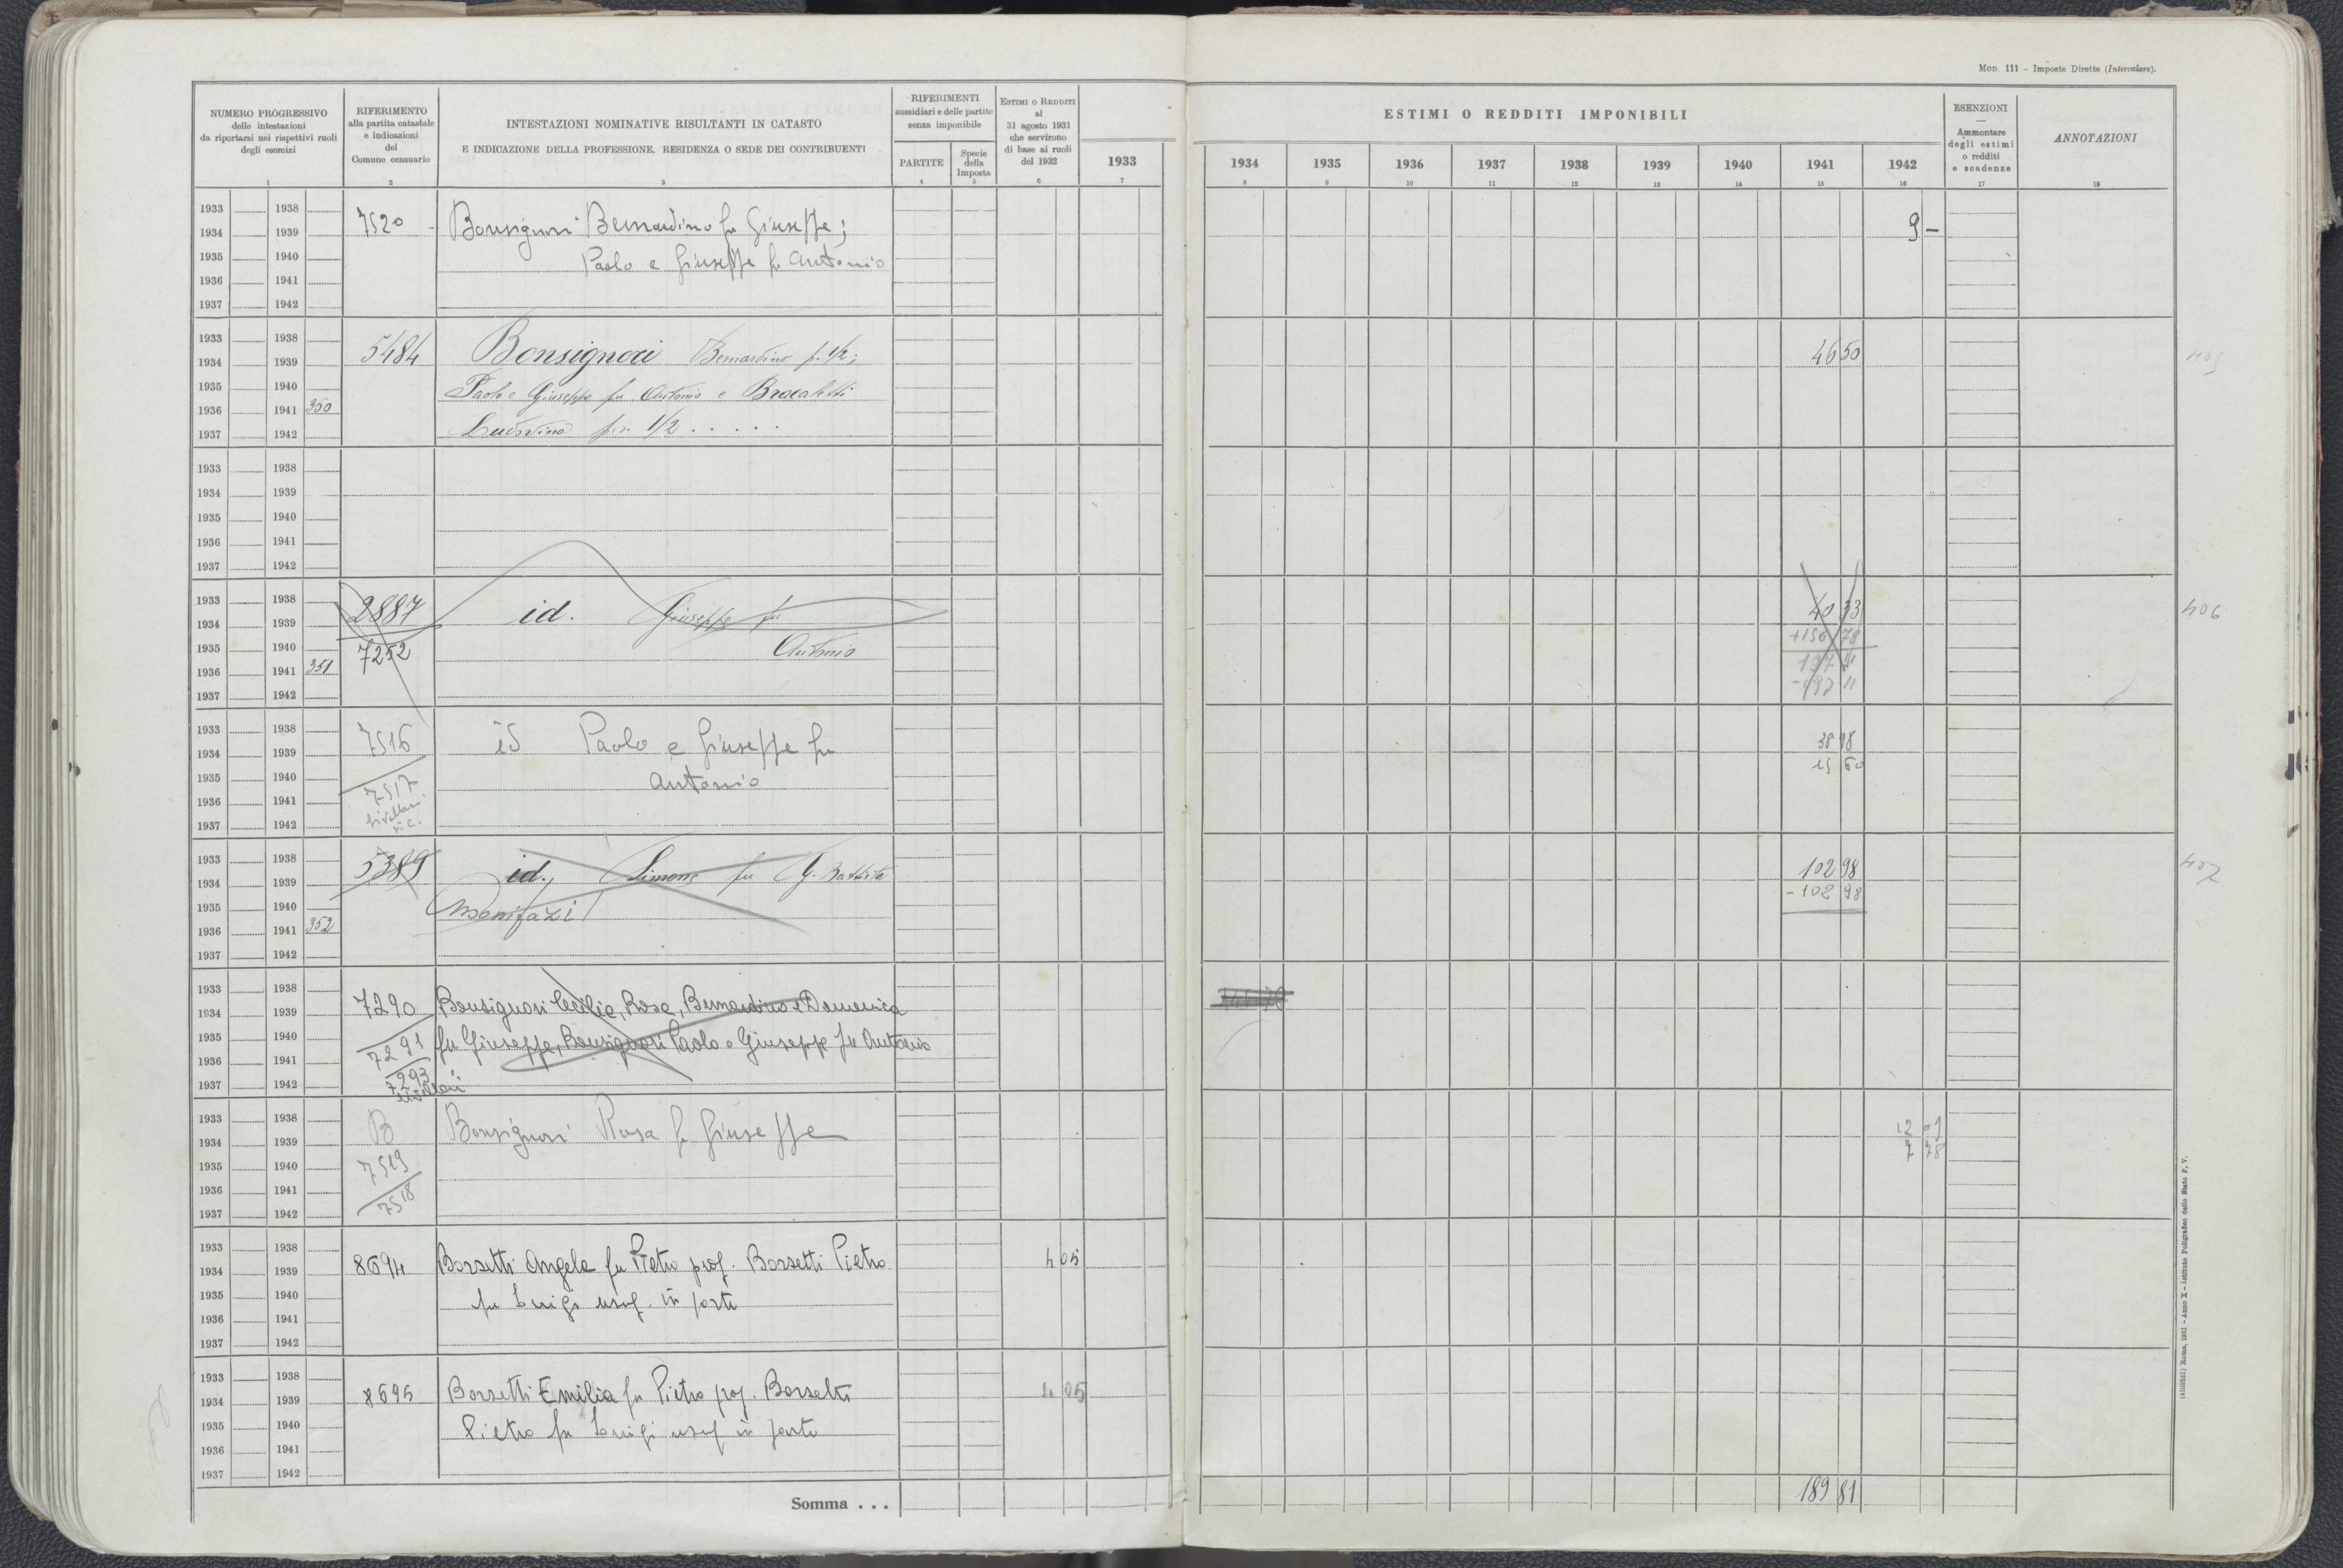 Mod. 111 - Imposte Dirette (Intercalare).
NUMERO PROGRESSIVO
delle intestazioni
da riportarsi nei rispettivi ruoli
degli esercizi
1
RIFERIMENTO
alla partita catastale
e indicazioni
del
Comune censuario
2
INTESTAZIONI NOMINATIVE RISULTANTI IN CATASTO
E INDICAZIONE DELLA PROFESSIONE, RESIDENZA O SEDE DEI CONTRIBUENTI
3
RIFERIMENTI
sussidiari e delle partite
senza imponibile
PARTITE
4
Specie
della
Imposta
5
Estimi o Redditi
al
31 agosto 1931
che servirono
di base ai ruoli
del 1932
6
1933
7
ESTIMI O REDDITI IMPONIBILI
1934 1935 1936 1937 1938 1939 1940 1941 1942
8 9 10 11 12 13 14 15 16
ESENZIONI
—
Ammontare
degli estimi
o redditi
e scadenze
17
ANNOTAZIONI
18
1933 1938
1934 1939 7520 - Bonsignori Bernardino fu Giuseppe; 9 -
1935 1940 Paolo e Giuseppe fu Antonio
1936 1941
1937 1942
1933 1938
1934 1939 5484 Bonsignori Bernardino p. 1/2; 46 50 405
1935 1940 Paolo e Giuseppe fu Antonio e
1936 1941 350
1937 1942 per 1/2 . . . . .
1933 1938
1934 1939
1935 1940
1936 1941
1937 1942
1933 1938 2887 id. Giuseppe fu 40 33 406
1934 1939 +156 78
1935 1940 7252 Antonio 197 11
1936 1941 351 -197 11
1937 1942
1933 1938 7516 id Paolo e Giuseppe fu 38 98
1934 1939 15 60
1935 1940 7517 Antonio
1936 1941 livellari
1937 1942
1933 1938 5389 id. Simone fu G. Battista 102 98 407
1934 1939 -102 98
1935 1940 Bonifazi
1936 1941 352
1937 1942
1933 1938
1934 1939 7290 Bonsignori Cecilia, Rosa, Bernardino e Domenica
1935 1940 7291 fu Giuseppe, Bonsignori Paolo e Giuseppe fu Antonio
1936 1941 7293
1937 1942 livellari
1933 1938 B Bonsignori Rosa fu Giuseppe 12 01
1934 1939 7 78
1935 1940 7519
1936 1941 7518
1937 1942
1933 1938
1934 1939 8694 Borsetti Angela fu Pietro prop. Borsetti Pietro 4 05
1935 1940 fu Luigi usuf. in parte
1936 1941
1937 1942
1933 1938
1934 1939 8695 Borsetti Emilia fu Pietro prop. Borsetti 4 05
1935 1940 Pietro fu Luigi usuf in parte
1936 1941
1937 1942
Somma . . . 189 81
(4103531) Roma, 1931 - Anno X - Istituto Poligrafico dello Stato P. V.